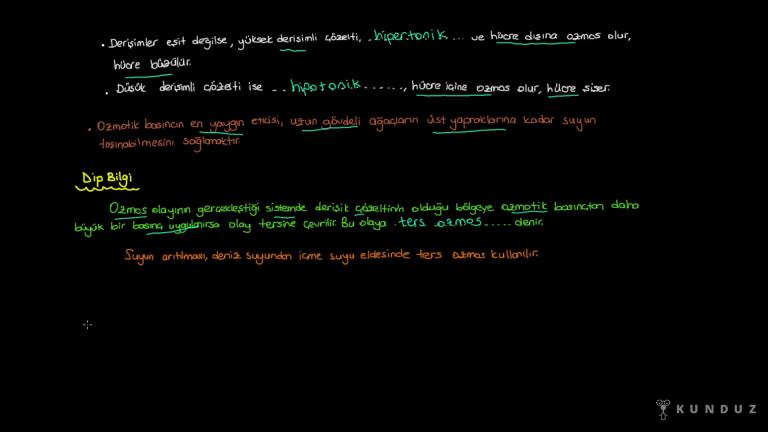 • Derişimler eşit değilse, yüksek derişimli çözelti, ..hipertonik... ve hücre dışına ozmos olur,
hücre büzülür.
• Düşük derişimli çözelti ise ...hipotonik......, hücre içine ozmos olur, hücre şişer.
• Ozmotik basıncın en yaygın etkisi, uzun gövdeli ağaçların üst yapraklarına kadar suyun
taşınabilmesini sağlamaktır.
Dip Bilgi
Ozmos olayının gerçekleştiği sistemde derişik çözeltinin olduğu bölgeye ozmotik basınçtan daha
büyük bir basınç uygulanırsa olay tersine çevrilir. Bu olaya .ters ozmos..... denir.
Suyun arıtılması, deniz suyundan içme suyu eldesinde ters ozmos kullanılır.
KUNDUZ